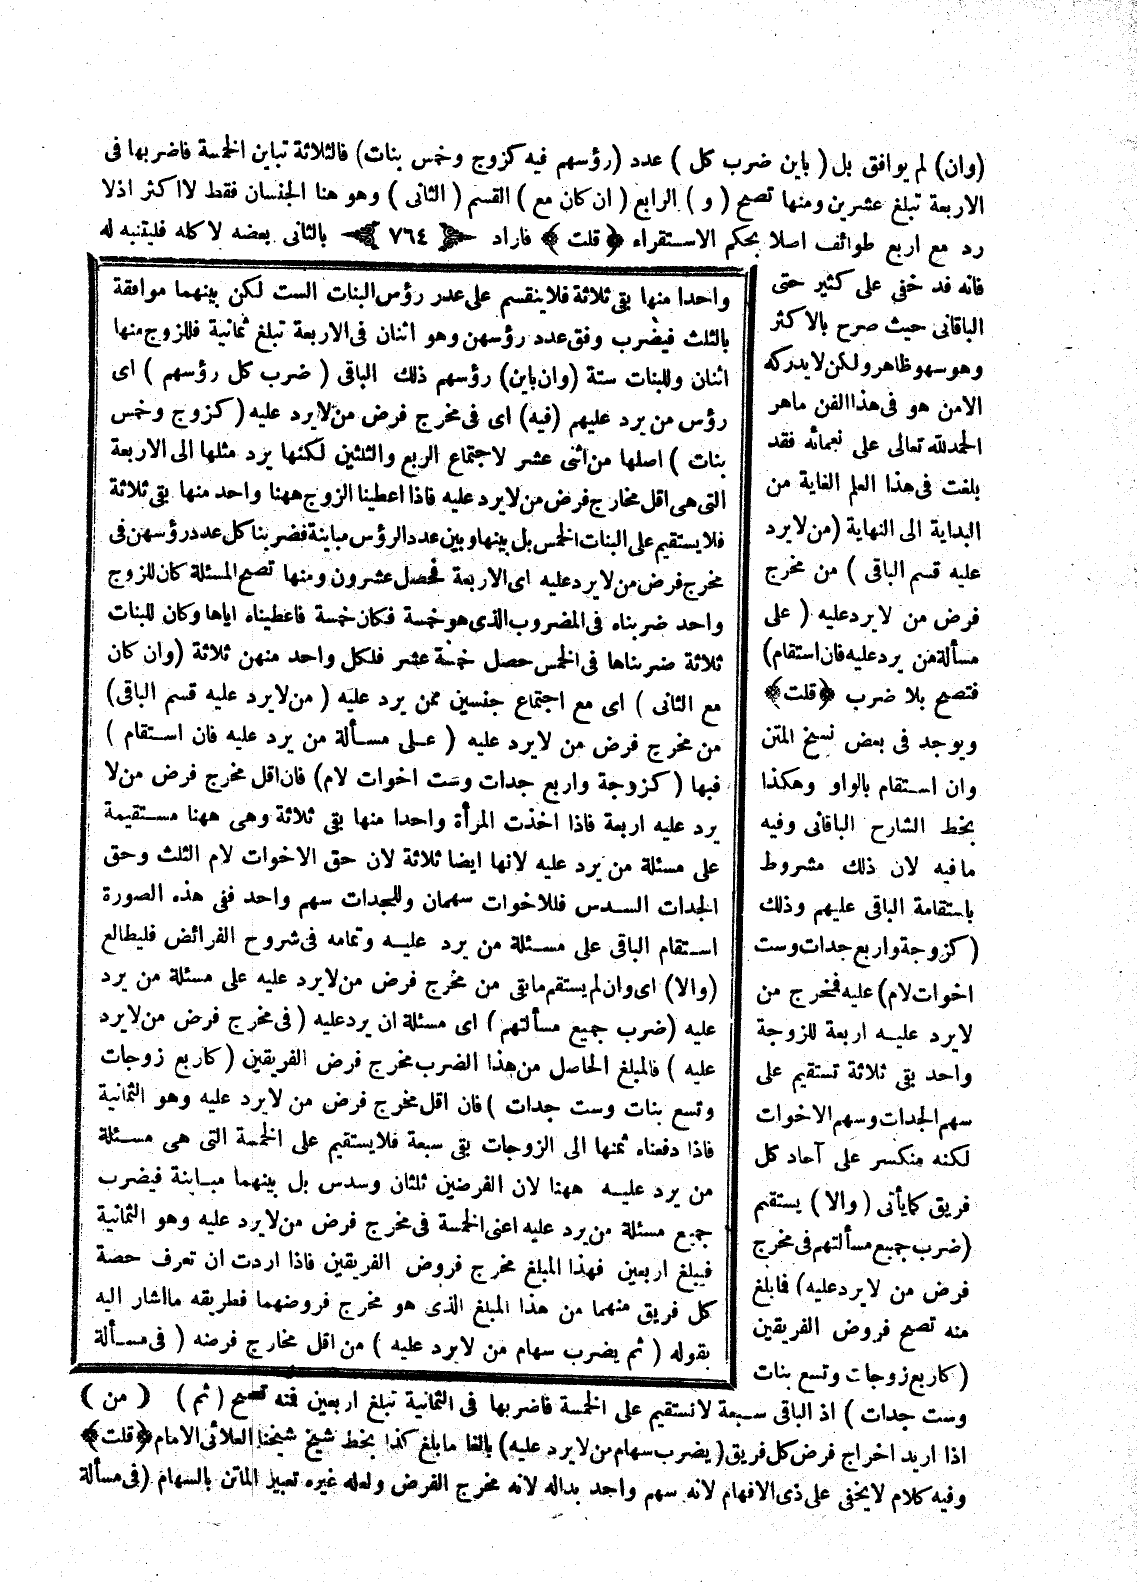 (وان) لم يوافق بل ( باين ضرب كل ) عدد (رؤسهم فيه كزوج وخمس بنات) فالثلاثة تباين الخمسة فاضربها فى
الاربعة تبلغ عشرين ومنها تصح ( و ) الرابع ( ان كان مع ) القسم ( الثانى ) وهو هنا الجنسان فقط لا اكثر اذلا
رد مع اربع طوائف اصلا بحكم الاستقراء ﴿ قلت ﴾ فاراد ٧٦٤ بالثانى بعضه لا كله فليتنبه له
فانه قد خفى على كثير حتى
الباقانى حيث صرح بالاكثر
وهوسهوظاهر ولكن لايدركه
الامن هو فى هذا الفن ماهر
الحمدلله تعالى على نعمائه فقد
بلغت فى هذا العلم الغاية من
البداية الى النهاية (من لايرد
عليه قسم الباقى ) من مخرج
فرض من لا يردعليه ( على
مسألة من يردعليه فان استقام)
فتصح بلا ضرب ﴿قلت﴾
ويوجد فى بعض نسخ المتن
وان استقام بالواو وهكذا
بخط الشارح الباقانى وفيه
مافيه لان ذلك مشروط
باستقامة الباقى عليهم وذلك
( كزوجة واربع جدات وست
اخوات لام) عليه فمخرج من
لا يرد عليه اربعة للزوجة
واحد بقى ثلاثة تستقيم على
سهم الجدات وسهم الاخوات
لكنه منكسر على آحاد كل
فريق كمايأتى ( والا ) يستقيم
(ضرب جميع مسألتهم فى مخرج
فرض من لا يردعليه) فابلغ
منه تصح فروض الفريقين
( كاربع زوجات وتسع بنات
واحدا منها بقى ثلاثة فلاينقسم على عدر رؤس البنات الست لكن بينهما موافقة
بالثلث فيضرب وفق عدد رؤسهن وهو اثنان فى الاربعة تبلغ ثمانية فللزوج منها
اثنان وللبنات ستة (وان باين) رؤسهم ذلك الباقى ( ضرب كل رؤسهم ) اى
رؤس من يرد عليهم (فيه) اى فى مخرج فرض من لا يرد عليه ( كزوج وخمس
بنات ) اصلها من اثنى عشر لاجتماع الربع والثلثين لكنها يرد مثلها الى الاربعة
التى هى اقل مخارج فرض من لا يرد عليه فاذا اعطينا الزوج ههنا واحد منها بقى ثلاثة
فلايستقيم على البنات الخمس بل بينها وبين عدد الرؤس مباينة فضربنا كل عدد رؤسهن فى
مخرج فرض من لا يردعليه اى الاربعة فحصل عشرون ومنها تصح المسئلة كان للزوج
واحد ضربناه فى المضروب الذى هو خمسة فكان خمسة فاعطيناه اياها وكان للبنات
ثلاثة ضربناها فى الخمس حصل خمسة عشر فلكل واحد منهن ثلاثة (وان كان
مع الثانى ) اى مع اجتماع جنسين ممن يرد عليه ( من لا يرد عليه قسم الباقى)
من مخرج فرض من لا يرد عليه ( على مسألة من يرد عليه فان استقام )
فبها ( كزوجة واربع جدات وست اخوات لام) فان اقل مخرج فرض من لا
يرد عليه اربعة فاذا اخذت المرأة واحدا منها بقى ثلاثة وهى ههنا مستقيمة
على مسئلة من يرد عليه لانها ايضا ثلاثة لان حق الاخوات لام الثلث وحق
الجدات السدس فللاخوات سهمان وللجدات سهم واحد ففى هذه الصورة
استقام الباقى على مسئلة من يرد عليه وتمامه فى شروح الفرائض فليطالع
(والا) اى وان لم يستقم مابقى من مخرج فرض من لا يرد عليه على مسئلة من يرد
عليه (ضرب جميع مسألتهم) اى مسئلة ان يردعليه ( فى مخرج فرض من لا يرد
عليه ) فالمبلغ الحاصل من هذا الضرب مخرج فرض الفريقين ( كاربع زوجات
وتسع بنات وست جدات ) فان اقل مخرج فرض من لا يرد عليه وهو الثمانية
فاذا دفعناه ثمنها الى الزوجات بقى سبعة فلايستقيم على الخمسة التى هى مسئلة
من يرد عليه ههنا لان الفرضين ثلثان وسدس بل بينهما مباينة فيضرب
جميع مسئلة من يرد عليه اعنى الخمسة فى مخرج فرض من لا يرد عليه وهو الثمانية
فيبلغ اربعين فهذا المبلغ مخرج فروض الفريقين فاذا اردت ان تعرف حصة
كل فريق منهما من هذا المبلغ الذى هو مخرج فروضهما فطريقه ما اشار اليه
بقوله ( ثم يضرب سهام من لا يرد عليه ) من اقل مخارج فرضه ( فى مسألة
وست جدات ) اذ الباقى سبعة لا تستقيم على الخمسة فاضربها فى الثمانية تبلغ اربعين فمنه تصح ( ثم ) ( من )
اذا اريد اخراج فرض كل فريق ( يضرب سهام من لا يرد عليه) بالغا مابلغ كذا بخط شيخ شيخنا العلائى الامام ﴿قلت﴾
وفيه كلام لا يخفى على ذى الافهام لانه سهم واحد بداله لانه مخرج الفرض ولعله غيره تعبيز الماتن بالسهام (فى مسألة